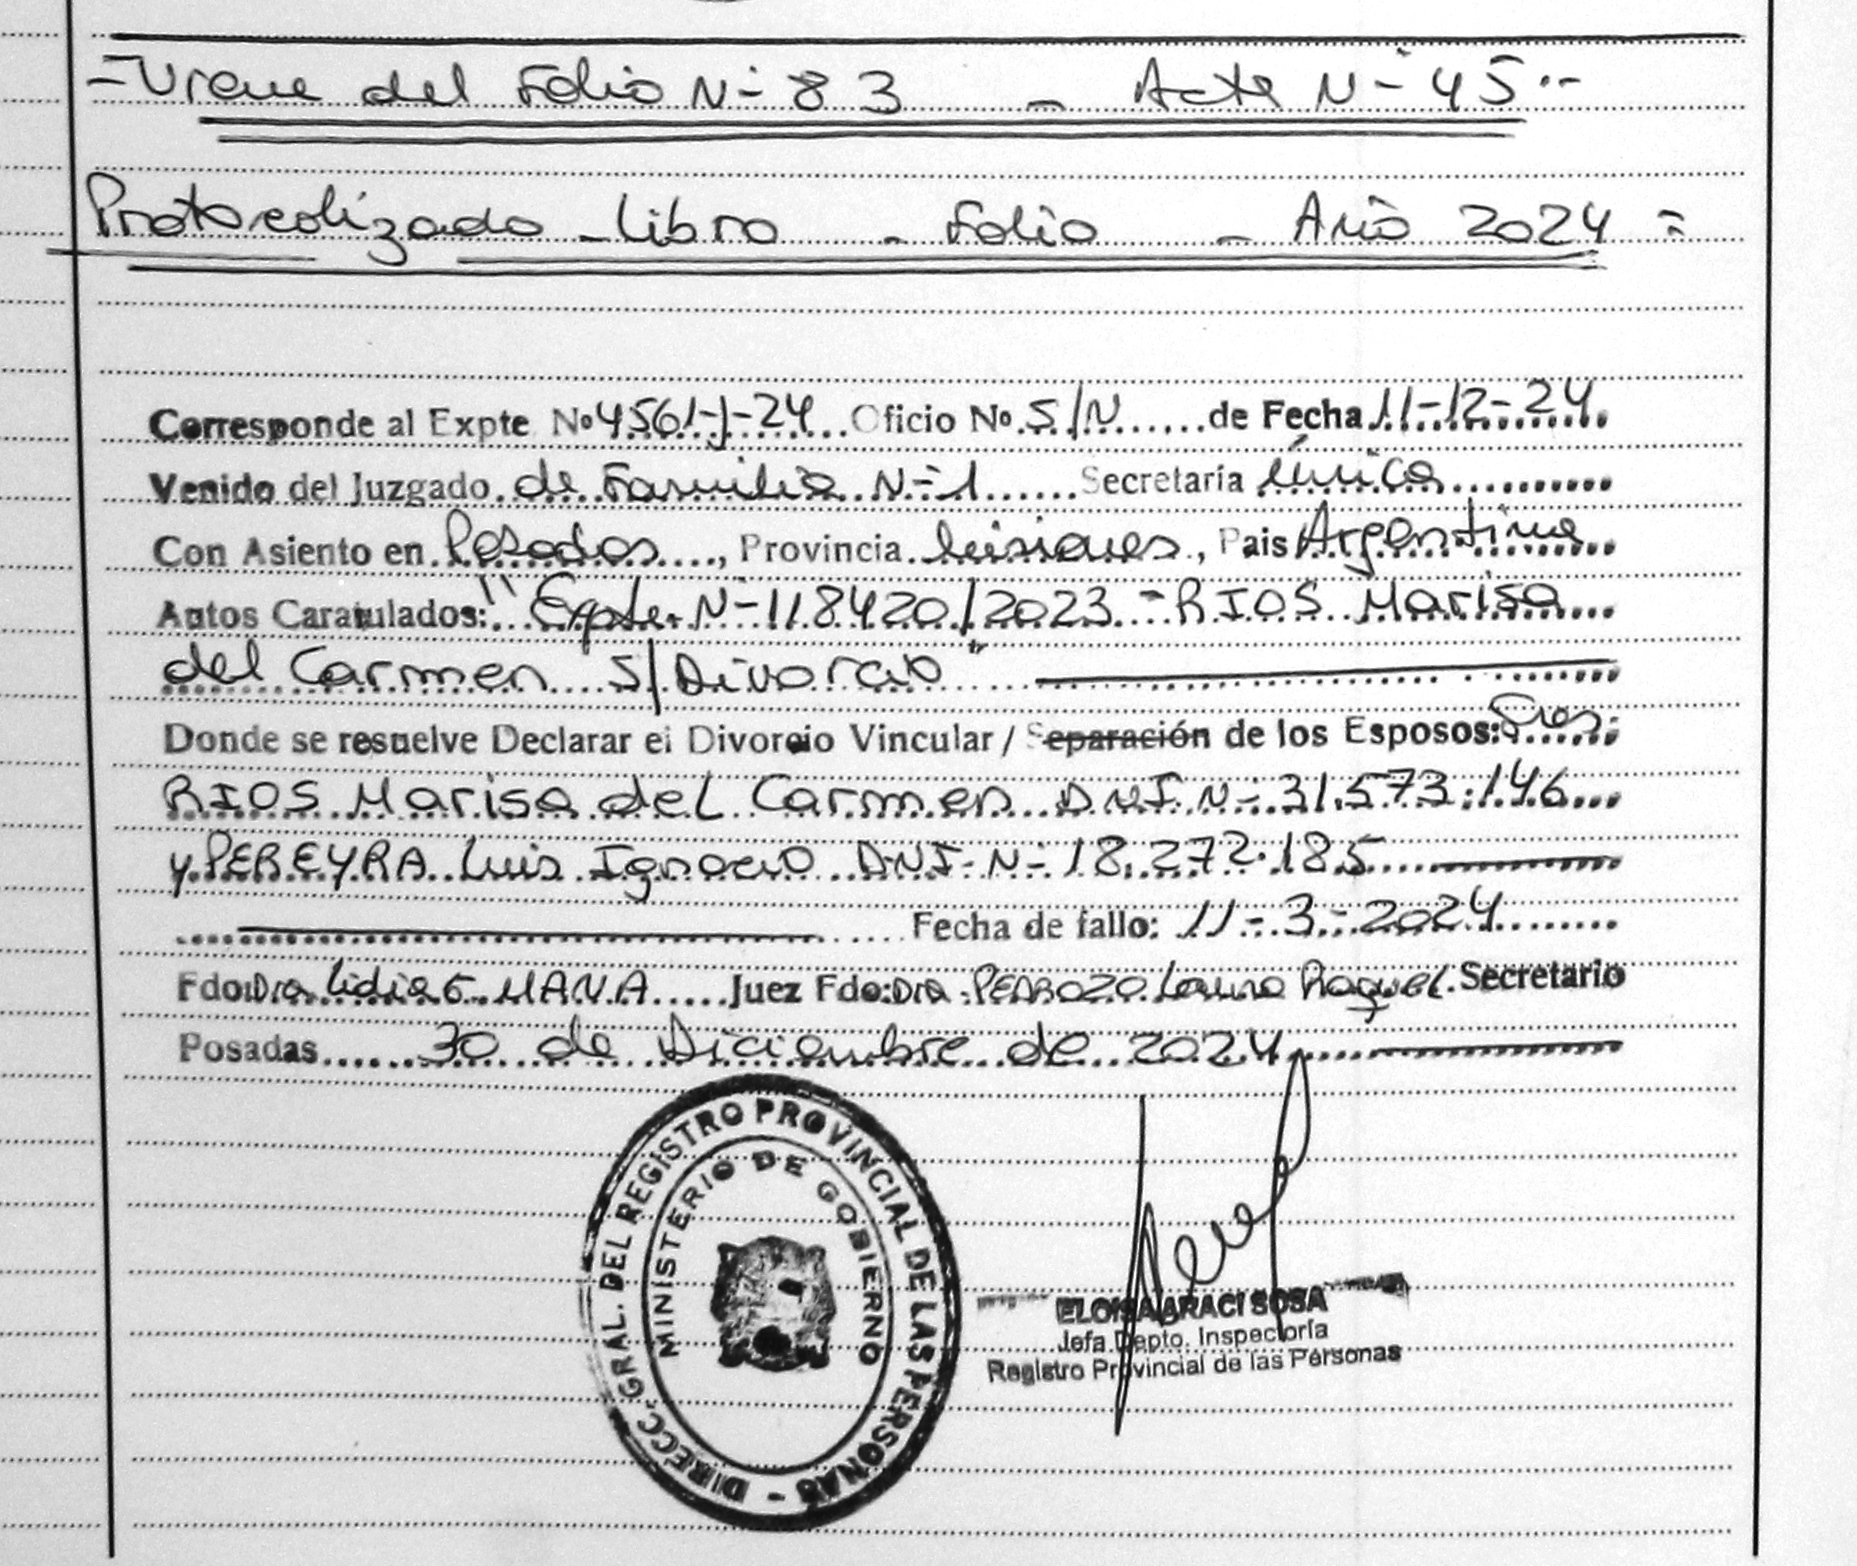 = Viene del Folio N- 83 - Acta N- 45 --
Protocolizado - Libro - Folio - Año 2024 =
Corresponde al Expte Nº 4561-J-24 Oficio Nº S/N de Fecha 11-12-24
Venido del Juzgado de Familia N-1 Secretaría única
Con Asiento en Posadas, Provincia Misiones, Pais Argentina
Autos Caratulados: "Expte. N- 118420/2023 - RIOS Marisa
del Carmen S/Divorcio"
Donde se resuelve Declarar el Divorcio Vincular / Separación de los Esposos: Sres.
RIOS Marisa del Carmen D.N.I. N- 31.573.146
y PEREYRA Luis Ignacio D.N.I. N- 18.272.185
Fecha de fallo: 11-3-2024
Fdo: Dra. Lidia E. MANA Juez Fdo: Dra. PEDROZO Laura Raquel Secretario
Posadas 30 de Diciembre de 2024
DIRECC. GRAL. DEL REGISTRO PROVINCIAL DE LAS PERSONAS -
MINISTERIO DE GOBIERNO
ELOISA ARACI SOSA
Jefa Depto. Inspectoría
Registro Provincial de las Personas